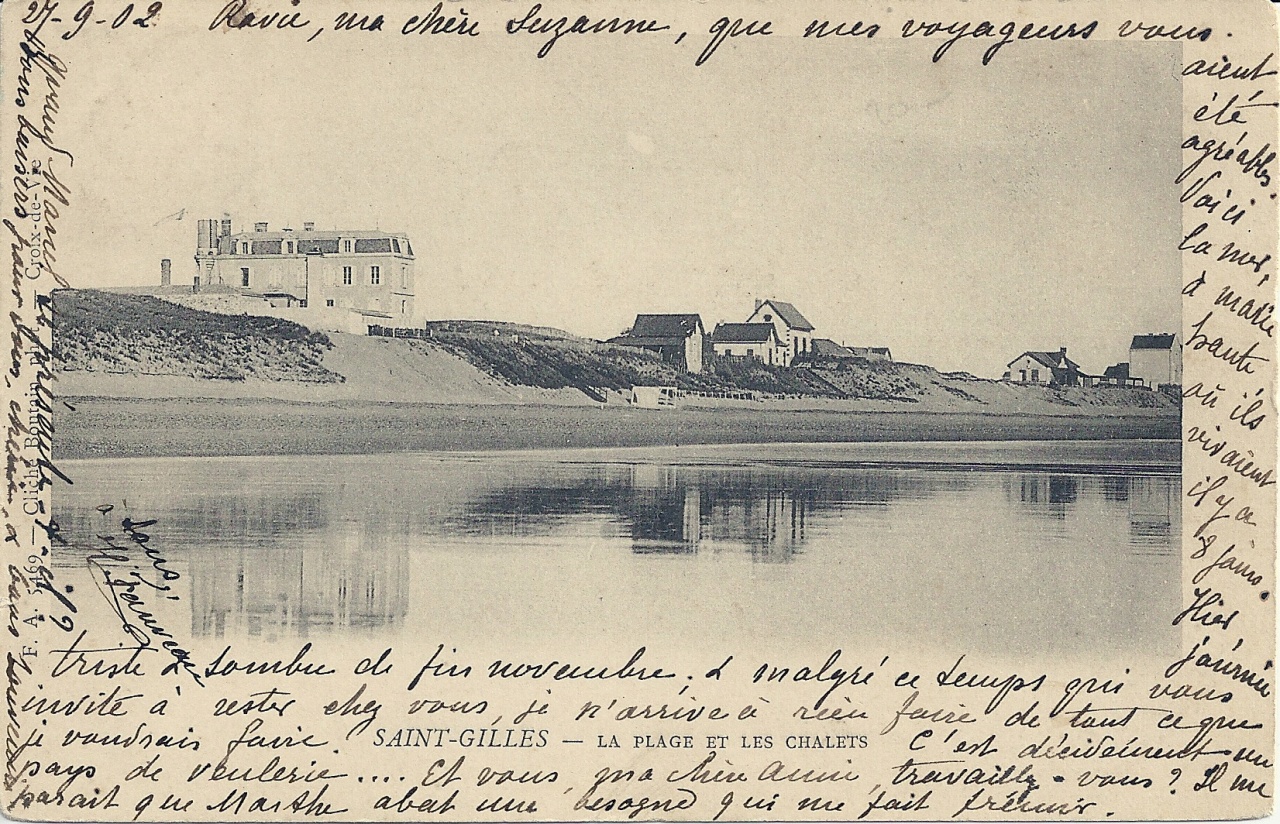 27-9-02 Ravie, ma chère Suzanne, que mes voyageurs vous.
aient
été
agréables.
Voici
la mer,
à marée
haute
où ils
vivaient
il y a
8 jours.
Hier
journée
triste & sombre de fin novembre, & malgré ce temps qui vous
invite à rester chez vous, je n'arrive à rien faire de tout ce que
je voudrais faire. C'est décidément un
SAINT-GILLES — LA PLAGE ET LES CHALETS
pays de veulerie.... Et vous, ma chère amie, travaillez-vous? Il me
parait que Marthe abat une besogne qui me fait frémir.
F. A. 5169 — Cliché Croix-de-Vie
Bons baisers pour tous, & bons souvenirs